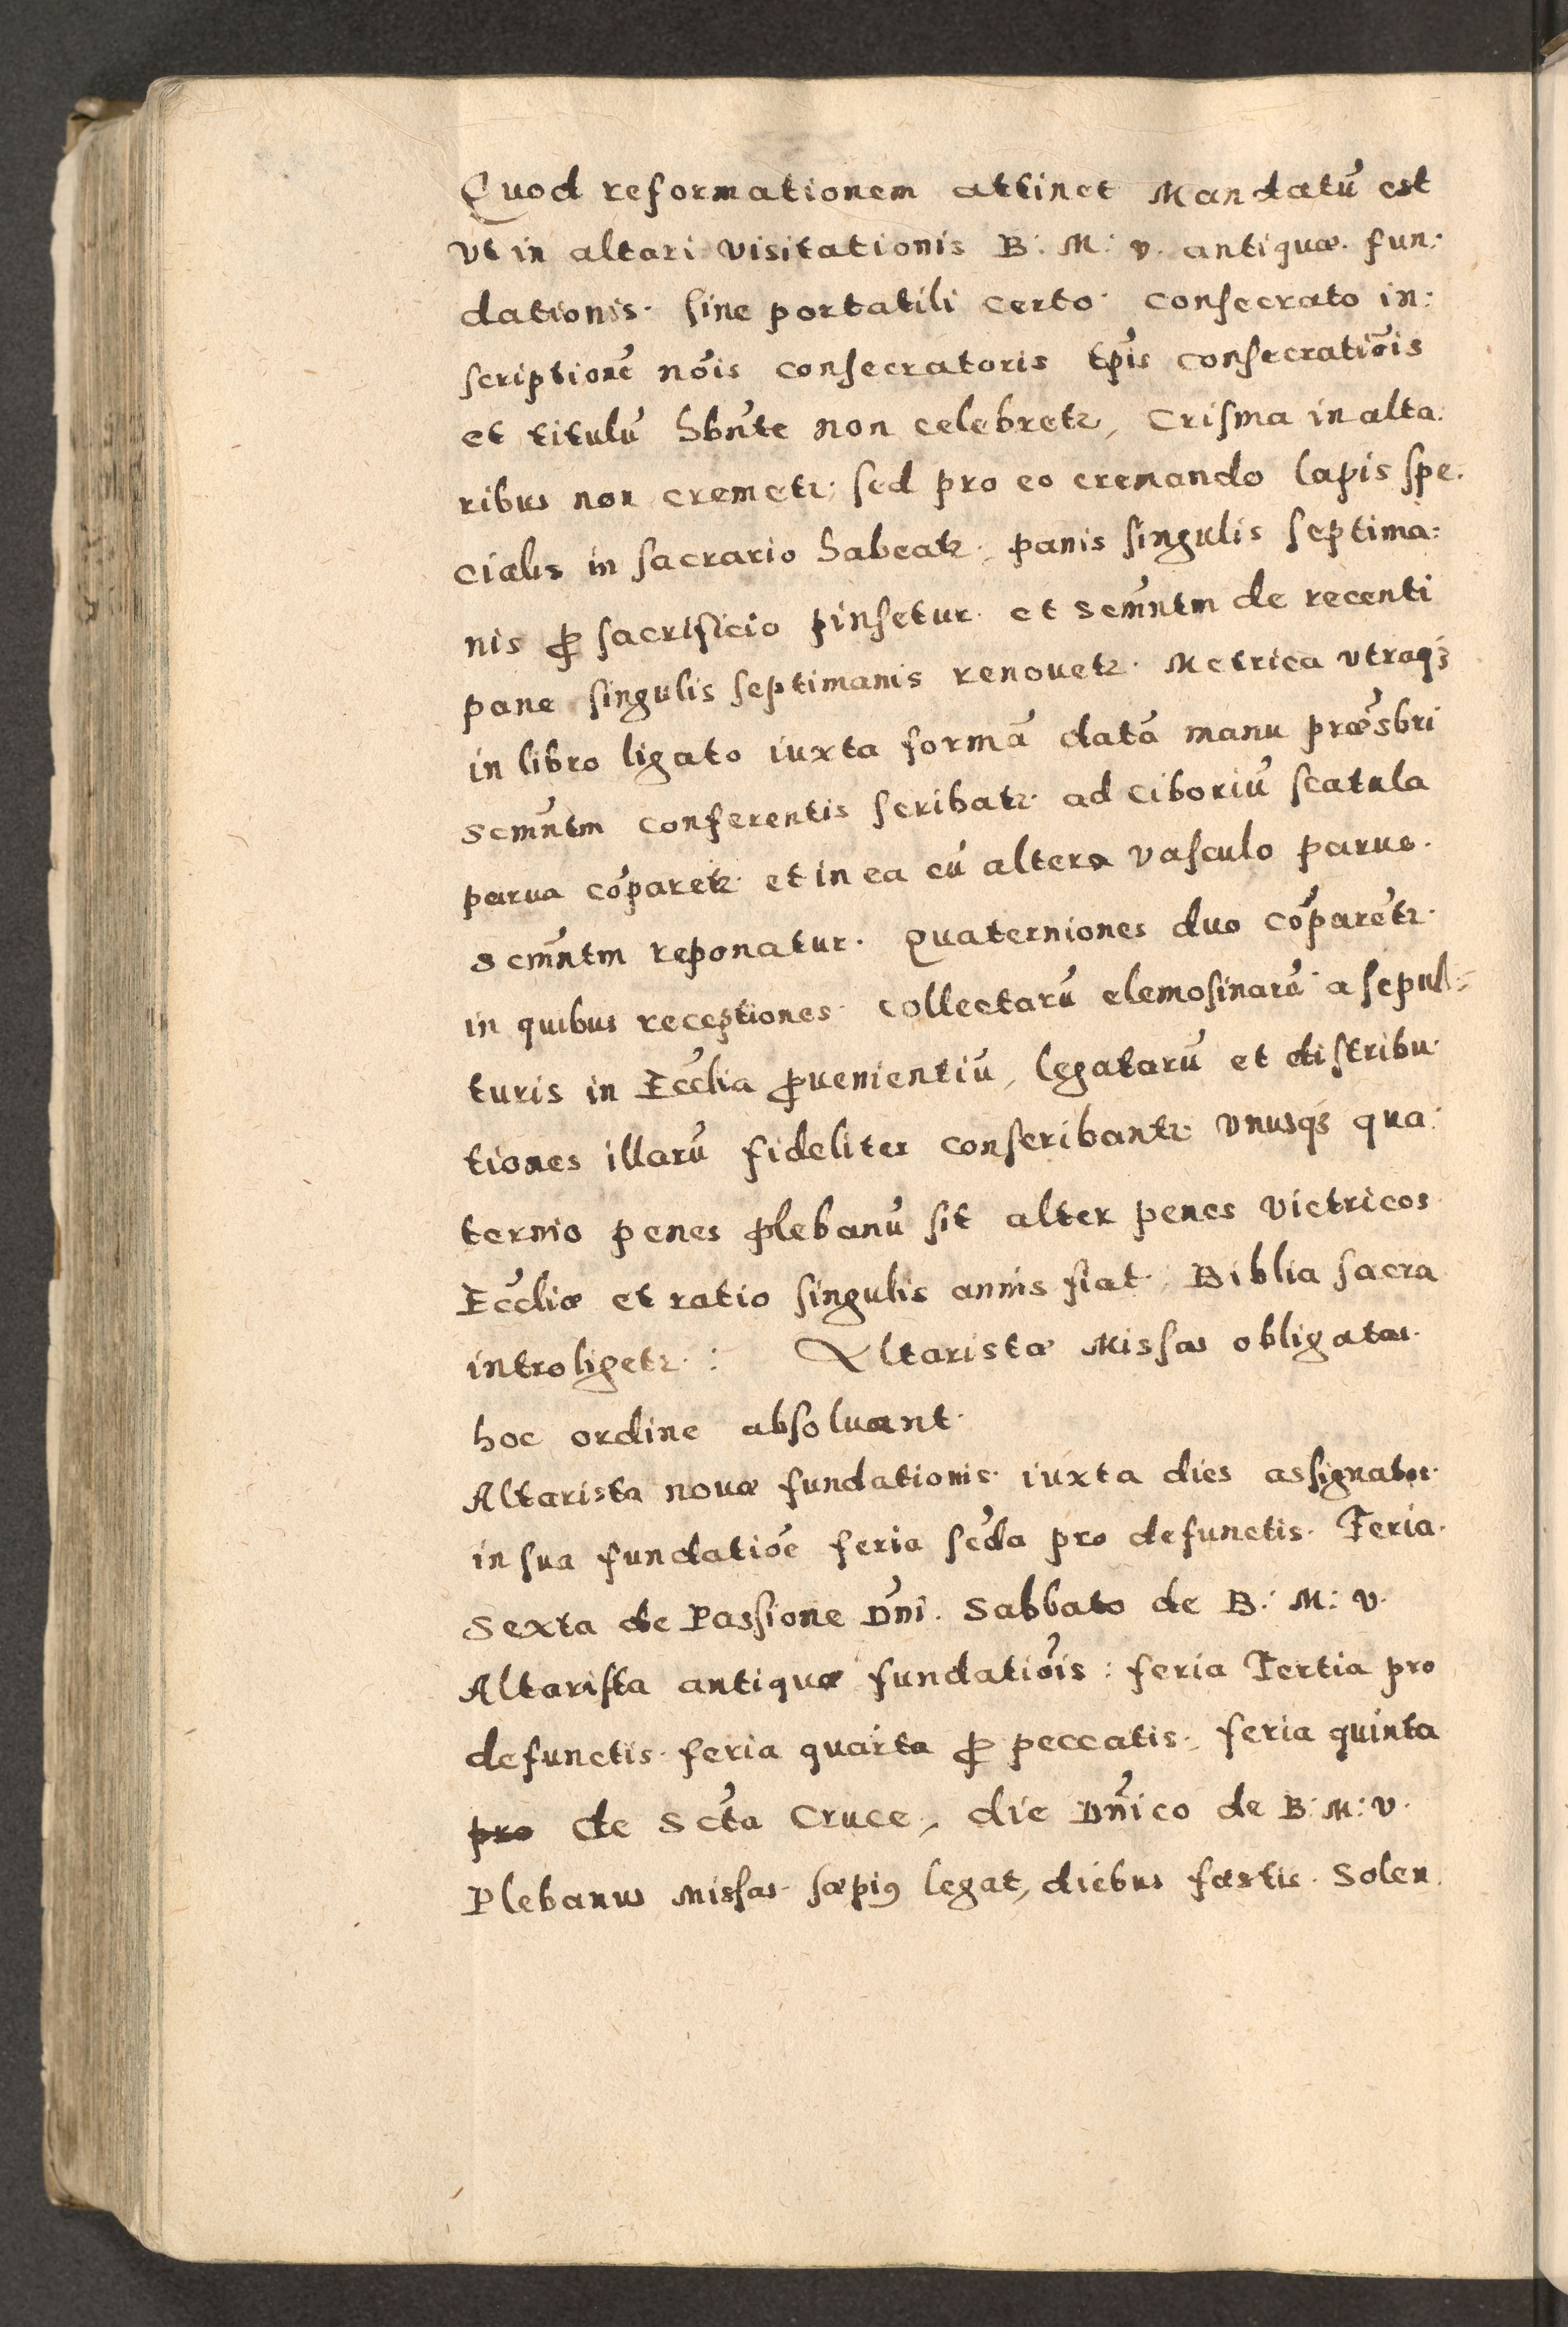 Quod reformationem attinet Mandatū est
Vt in altari visitationis B: M: v. antiquæ. fun:
dationis. sine portatili certo. consecrato in:
scriptionē nōis consecratoris tp̄is consecratiōis
et titulū hbn̄te non celebretr, Crisma in alta:
ribus non cremetr; sed pro eo cremando lapis spe.
cialis in sacrario habeatr. panis singulis septima:
nis ꝓ sacrificio pinsetur. et scm̄ntm de recenti
pane singulis septimanis renouetr. Metrica vtraqꝫ
in libro ligato iuxta formā datā manu præs̄bri
scm̄ntm conferentis scribatr. ad ciboriū scatula
parua cōparetr. et in ea cū altero vasculo paruo.
scm̄ntm reponatur. Quaterniones duo cōparētr.
in quibus receptiones. collectarū elemosinarū a sepul:
turis in Eccl̄ia ꝓuenientiū, legatarū et distribu.
tiones illarū fideliter conscribantr. vnusqꝫ qua:
ternio penes plebanū sit alter penes victricos
Eccl̄iæ et ratio singulis annis fiat. Biblia sacra
introligetr. : Altaristæ Missas obligatas.
hoc ordine absoluant.
Altarista nouæ fundationis. iuxta dies assignatos.
in sua fundatiōe feria sc̄da pro defunctis. Feria.
Sexta de Passione Dn̄i. Sabbato de B: M: v.
Altarista antiquæ fundatiōis: feria Tertia pro
defunctis. feria quarta ꝓ peccatis., feria quinta
pro de Sct̄a Cruce, die Dn̄ico de B: M: v.
Plebanus Missas. sæpiꝰ legat, diebus festis. Solen.